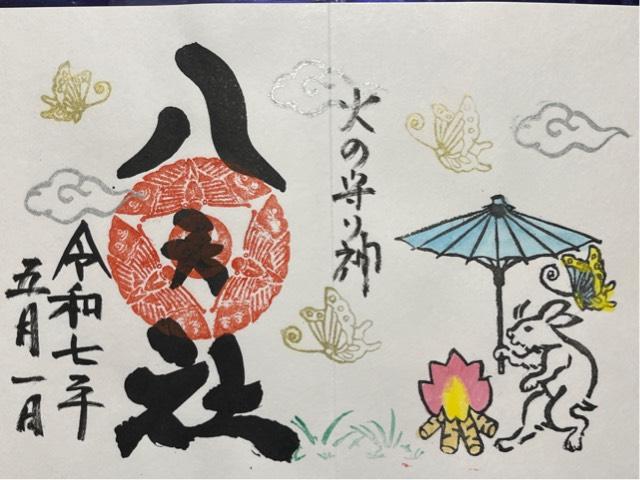 火の守り神
八天社
令和七年
五月一日